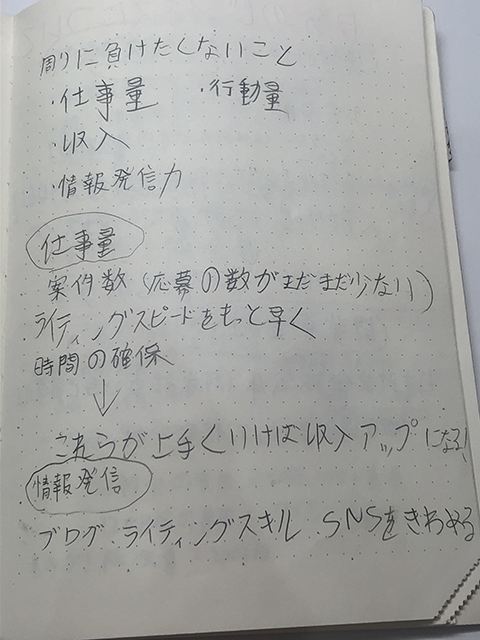 周りに負けたくないこと
・仕事量 ・行動量
・収入
・情報発信力
仕事量
案件数(応募の数がまだまだ少ない)
ライティングスピードをもっと早く
時間の確保
↓
これらが上手くいけば収入アップになる!
情報発信
ブログ ライティングスキル SNSをきわめる